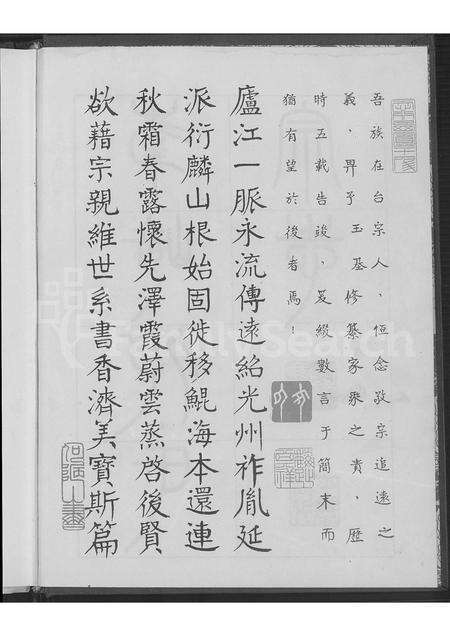 吾族在台宗人,恆念敬宗追遠之
義,畀予玉基修纂家乘之責,歷
時五載告竣,爰綴數言于簡末而
猶有望於後者焉!
廬江一脈永流傳遠紹光州祚胤延
派衍麟山根始固徙移鯤海本還連
秋霜春露懷先澤霞蔚雲蒸啓後賢
欲藉宗親維世系書香濟美寶斯篇
FamilySearch